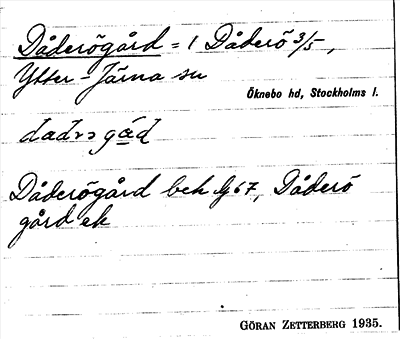 Dåderögård = 1 Dåderö 3/5,
Ytter-Järna sn
Öknebo hd, Stockholms l.
gå̱d
Dåderögård bek G 67, Dåderö
gård ek
GÖRAN ZETTERBERG 1935.